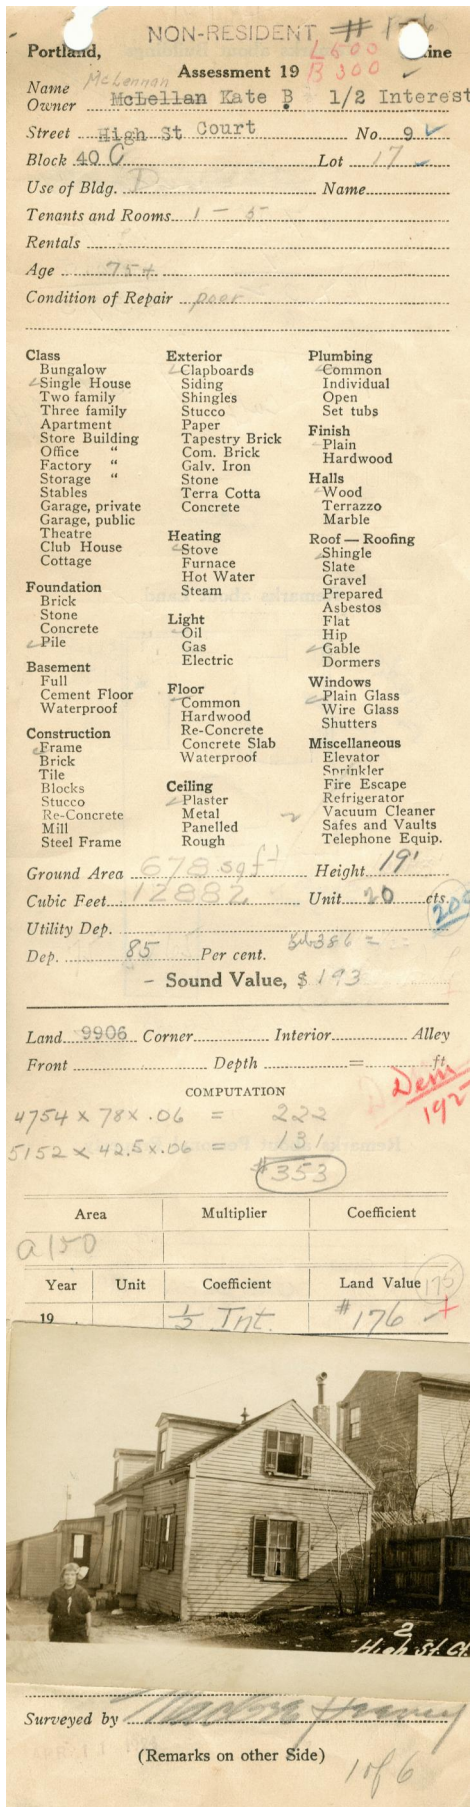 NON-RESIDENT #
Portland, Maine
L 500
Assessment 19 B 300
McLennan
Name
Owner McLellan Kate B. 1/2 Interest
Street High St Court No. 9
Block 40 C Lot 17
Use of Bldg. Name
Tenants and Rooms 1 - 5
Rentals
Age 75+
Condition of Repair poor
Class
Bungalow
Single House
Two family
Three family
Apartment
Store Building
Office "
Factory "
Storage "
Stables
Garage, private
Garage, public
Theatre
Club House
Cottage
Foundation
Brick
Stone
Concrete
Pile
Basement
Full
Cement Floor
Waterproof
Construction
Frame
Brick
Tile
Blocks
Stucco
Re-Concrete
Mill
Steel Frame
Exterior
Clapboards
Siding
Shingles
Stucco
Paper
Tapestry Brick
Com. Brick
Galv. Iron
Stone
Terra Cotta
Concrete
Heating
Stove
Furnace
Hot Water
Steam
Light
Oil
Gas
Electric
Floor
Common
Hardwood
Re-Concrete
Concrete Slab
Waterproof
Ceiling
Plaster
Metal
Panelled
Rough
Plumbing
Common
Individual
Open
Set tubs
Finish
Plain
Hardwood
Halls
Wood
Terrazzo
Marble
Roof — Roofing
Shingle
Slate
Gravel
Prepared
Asbestos
Flat
Hip
Gable
Dormers
Windows
Plain Glass
Wire Glass
Shutters
Miscellaneous
Elevator
Sprinkler
Fire Escape
Refrigerator
Vacuum Cleaner
Safes and Vaults
Telephone Equip.
Ground Area 678 sq ft Height 19'
Cubic Feet 12882 Unit 20 cts.
200
Utility Dep.
Dep. 85 Per cent.
- Sound Value, $ 193
Land 9906 Corner Interior Alley
Front Depth = ft.
Dem
192
COMPUTATION
4754 x 78 x .06 = 222
5152 x 42.5 x .06 = 131
$353
Area Multiplier Coefficient
a150
Year Unit Coefficient Land Value 175
19 1/2 Int. #176 +
2
High St. Ct.
Surveyed by
(Remarks on other Side)
1 of 6